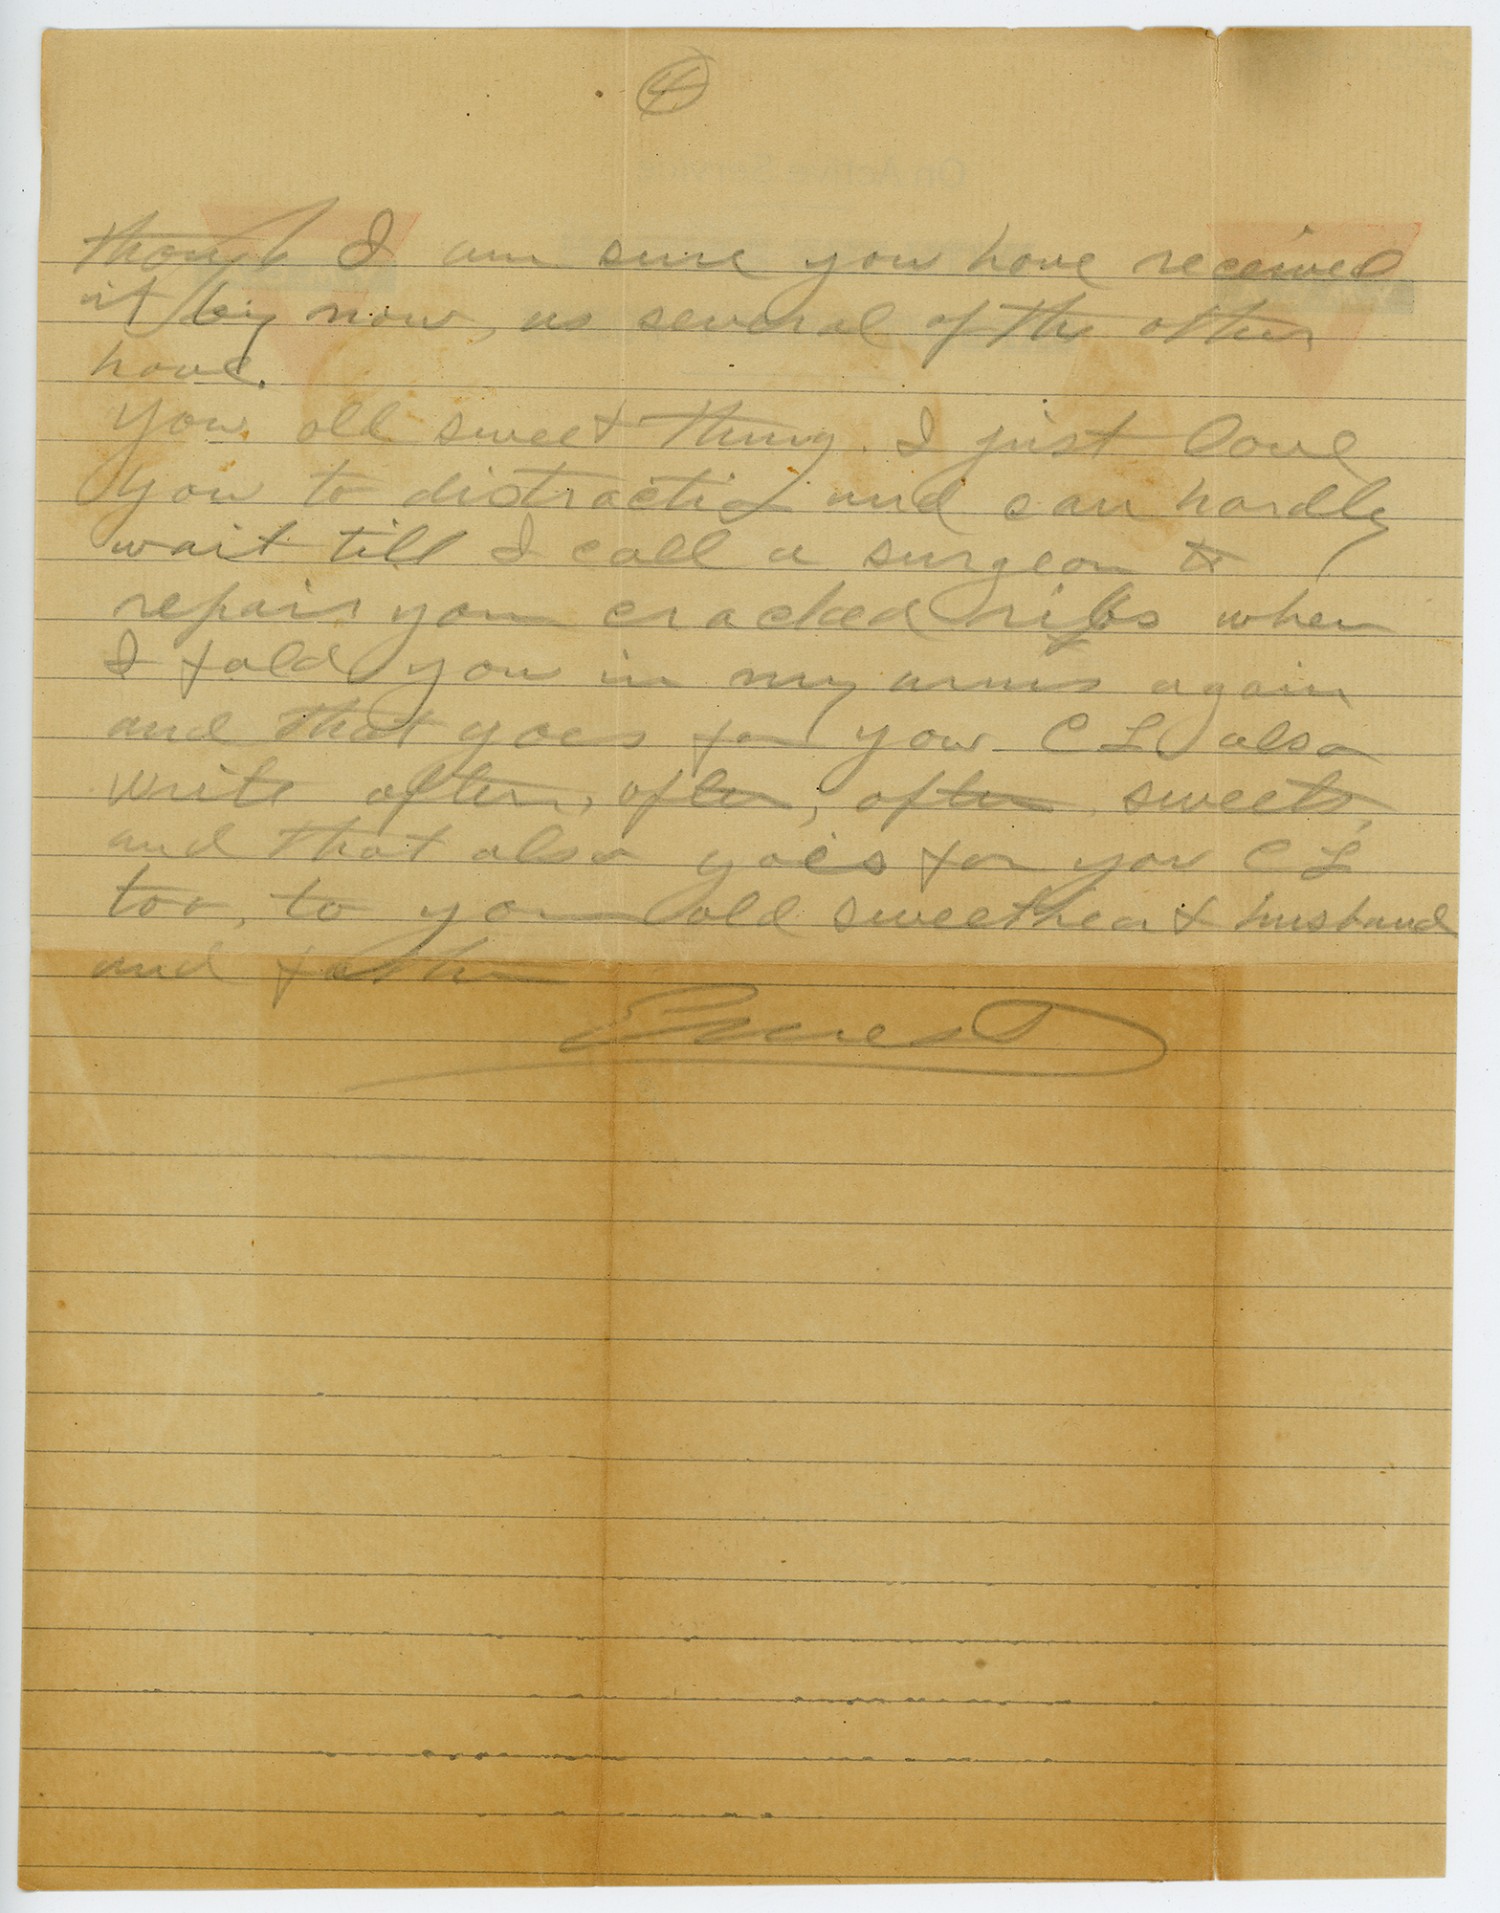 4
though I am sure you have received
it by now, as several of the other
have.
You old sweet thing. I just love
you to distraction and can hardly
wait till I call a surgeon to
repair your cracked ribs when
I fold you in my arms again
and that goes for you C L also
write often, often, often, sweets,
and that also goes for you C L
too, to your old sweetheart husband
and father
Ernest
On Active Service